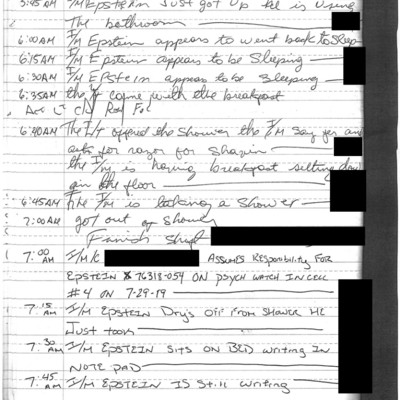 5:45AM I/M Epstein Just got up He is using
The bathroom
6:00AM I/M Epstein appears to went back to sleep
6:15AM I/M Epstein appears to be sleeping
6:30AM I/M Epstein appears to be sleeping
6:35AM the Lt came with the breakfast
6:40AM The Lt offered the shower the I/M say yes and
ask for razor for shavin
the I/M is having breakfast sitting down
in the floor
6:45AM The I/M is taking a shower
7:00AM got out of shower
Finish shift
7:00 AM I/M K ASSUMES RESPONSIBILITY FOR
EPSTEIN 76318-054 ON PSYCH WATCH IN CELL
#4 ON 7-29-19
7:15 AM I/M EPSTEIN DRY'S OFF FROM SHOWER HE
JUST TOOK
7:30 AM I/M EPSTEIN SITS ON BED WRITING IN
NOTE PAD
7:45 AM I/M EPSTEIN IS STILL WRITING